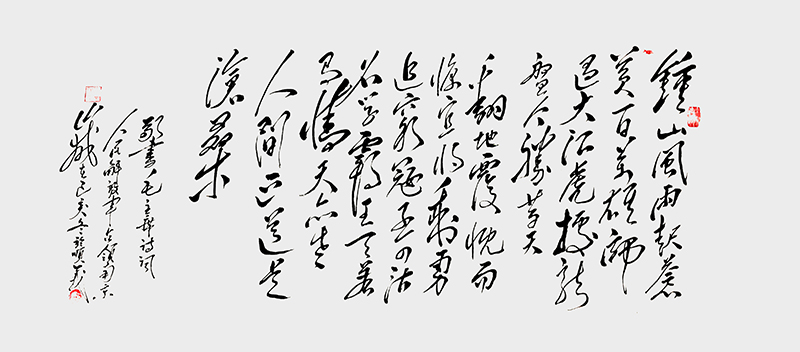 鍾山風雨起蒼
黄百萬雄師
過大江虎據龍
盤今勝昔天
翻地覆慨而
慷宜將剩勇
追窮寇不可沽
名學霸王天若
有情天亦老
人間正道是
滄桑
敬書毛主席詩詞
人民解放軍占領南京
歲在己亥冬